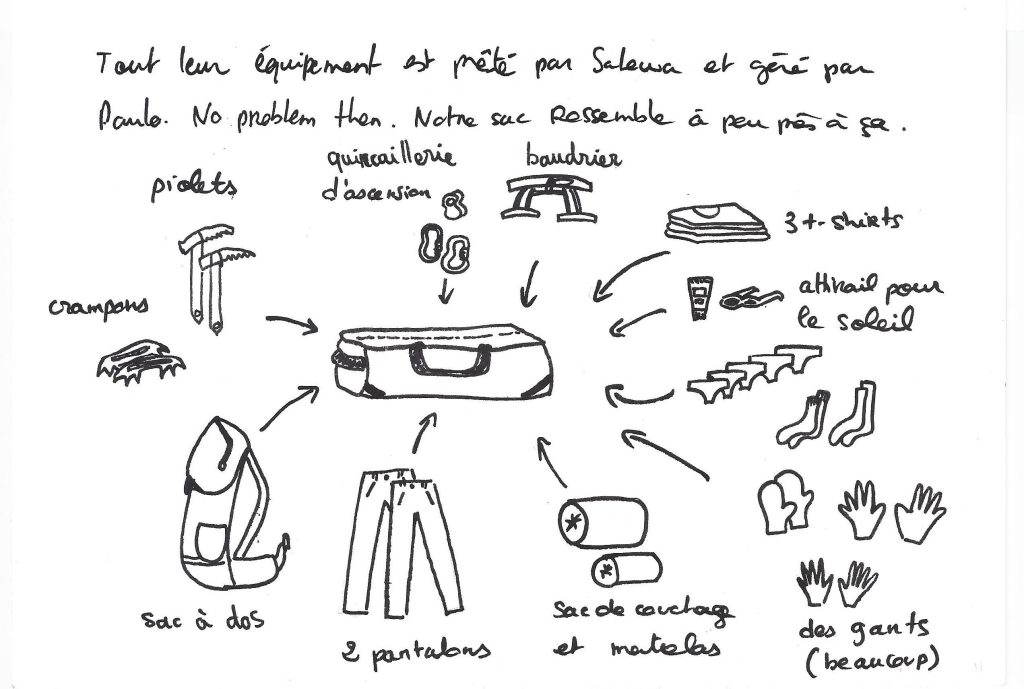 Tout leur équipement est prêté par Salewa et géré par
Paulo. No problem then. Notre sac ressemble à peu près à ça.
quincaillerie
d'ascension
baudrier
piolets
3 t-shirts
crampons
attirail pour
le soleil
sac à dos
2 pantalons
sac de couchage
et matelas
des gants
(beaucoup)